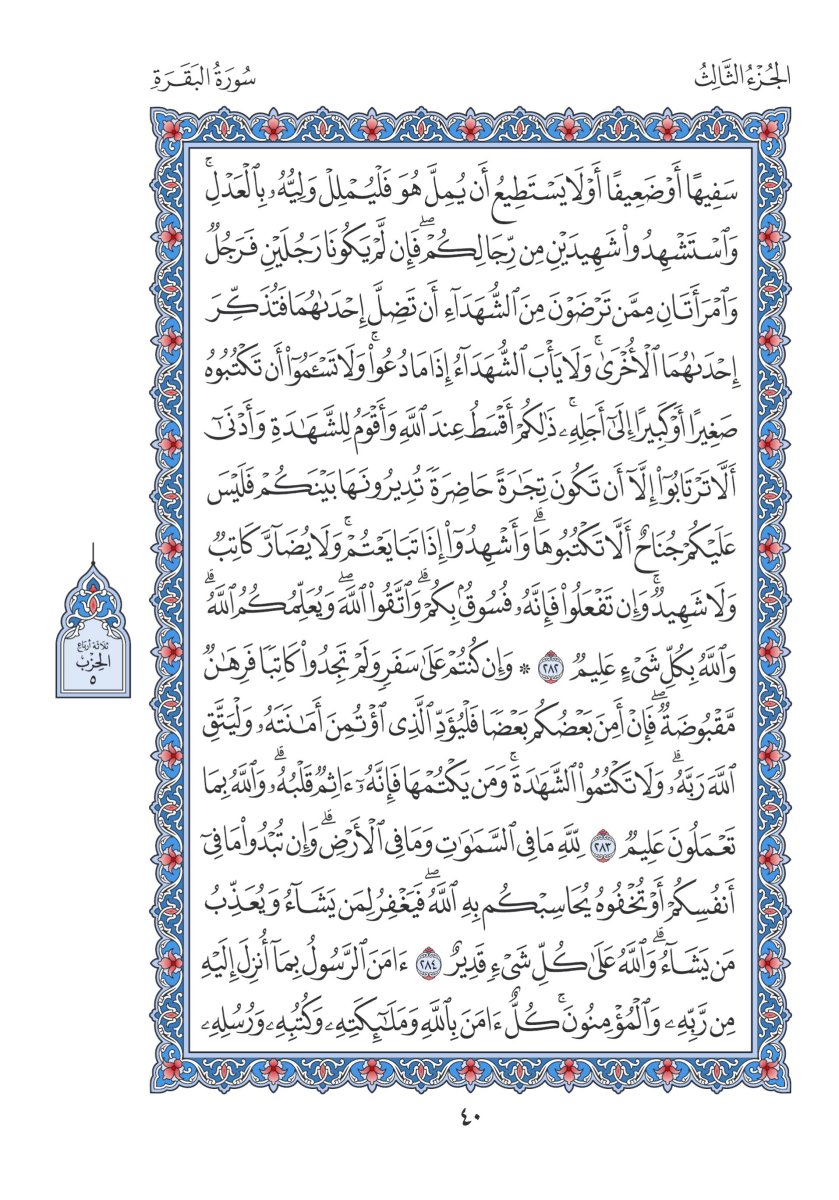 الجُزْءُ الثَّالِثُ
سُورَةُ البَقَرَةِ
سَفِيهًا أَوۡ ضَعِيفًا أَوۡ لَا يَسۡتَطِيعُ أَن يُمِلَّ هُوَ فَلۡيُمۡلِلۡ وَلِيُّهُۥ بِٱلۡعَدۡلِۚ
وَٱسۡتَشۡهِدُواْ شَهِيدَيۡنِ مِن رِّجَالِكُمۡۖ فَإِن لَّمۡ يَكُونَا رَجُلَيۡنِ فَرَجُلٞ
وَٱمۡرَأَتَانِ مِمَّن تَرۡضَوۡنَ مِنَ ٱلشُّهَدَآءِ أَن تَضِلَّ إِحۡدَىٰهُمَا فَتُذَكِّرَ
إِحۡدَىٰهُمَا ٱلۡأُخۡرَىٰۚ وَلَا يَأۡبَ ٱلشُّهَدَآءُ إِذَا مَا دُعُواْۚ وَلَا تَسۡـَٔمُوٓاْ أَن تَكۡتُبُوهُ
صَغِيرًا أَوۡ كَبِيرًا إِلَىٰٓ أَجَلِهِۦۚ ذَٰلِكُمۡ أَقۡسَطُ عِندَ ٱللَّهِ وَأَقۡوَمُ لِلشَّهَٰدَةِ وَأَدۡنَىٰٓ
أَلَّا تَرۡتَابُوٓاْ إِلَّآ أَن تَكُونَ تِجَٰرَةً حَاضِرَةٗ تُدِيرُونَهَا بَيۡنَكُمۡ فَلَيۡسَ
عَلَيۡكُمۡ جُنَاحٌ أَلَّا تَكۡتُبُوهَاۗ وَأَشۡهِدُوٓاْ إِذَا تَبَايَعۡتُمۡۚ وَلَا يُضَآرَّ كَاتِبٞ
وَلَا شَهِيدٞۚ وَإِن تَفۡعَلُواْ فَإِنَّهُۥ فُسُوقُۢ بِكُمۡۗ وَٱتَّقُواْ ٱللَّهَۖ وَيُعَلِّمُكُمُ ٱللَّهُۗ
وَٱللَّهُ بِكُلِّ شَيۡءٍ عَلِيمٞ ٢٨٢ * وَإِن كُنتُمۡ عَلَىٰ سَفَرٖ وَلَمۡ تَجِدُواْ كَاتِبٗا فَرِهَٰنٞ
مَّقۡبُوضَةٞۖ فَإِنۡ أَمِنَ بَعۡضُكُم بَعۡضٗا فَلۡيُؤَدِّ ٱلَّذِي ٱؤۡتُمِنَ أَمَٰنَتَهُۥ وَلۡيَتَّقِ
ٱللَّهَ رَبَّهُۥۗ وَلَا تَكۡتُمُواْ ٱلشَّهَٰدَةَۚ وَمَن يَكۡتُمۡهَا فَإِنَّهُۥٓ ءَاثِمٞ قَلۡبُهُۥۗ وَٱللَّهُ بِمَا
تَعۡمَلُونَ عَلِيمٞ ٢٨٣ لِّلَّهِ مَا فِي ٱلسَّمَٰوَٰتِ وَمَا فِي ٱلۡأَرۡضِۗ وَإِن تُبۡدُواْ مَا فِيٓ
أَنفُسِكُمۡ أَوۡ تُخۡفُوهُ يُحَاسِبۡكُم بِهِ ٱللَّهُۖ فَيَغۡفِرُ لِمَن يَشَآءُ وَيُعَذِّبُ
مَن يَشَآءُۗ وَٱللَّهُ عَلَىٰ كُلِّ شَيۡءٖ قَدِيرٌ ٢٨٤ ءَامَنَ ٱلرَّسُولُ بِمَآ أُنزِلَ إِلَيۡهِ
مِن رَّبِّهِۦ وَٱلۡمُؤۡمِنُونَۚ كُلٌّ ءَامَنَ بِٱللَّهِ وَمَلَٰٓئِكَتِهِۦ وَكُتُبِهِۦ وَرُسُلِهِۦ
ثلاثة أرباع
الحِزْب
٥
٤٠